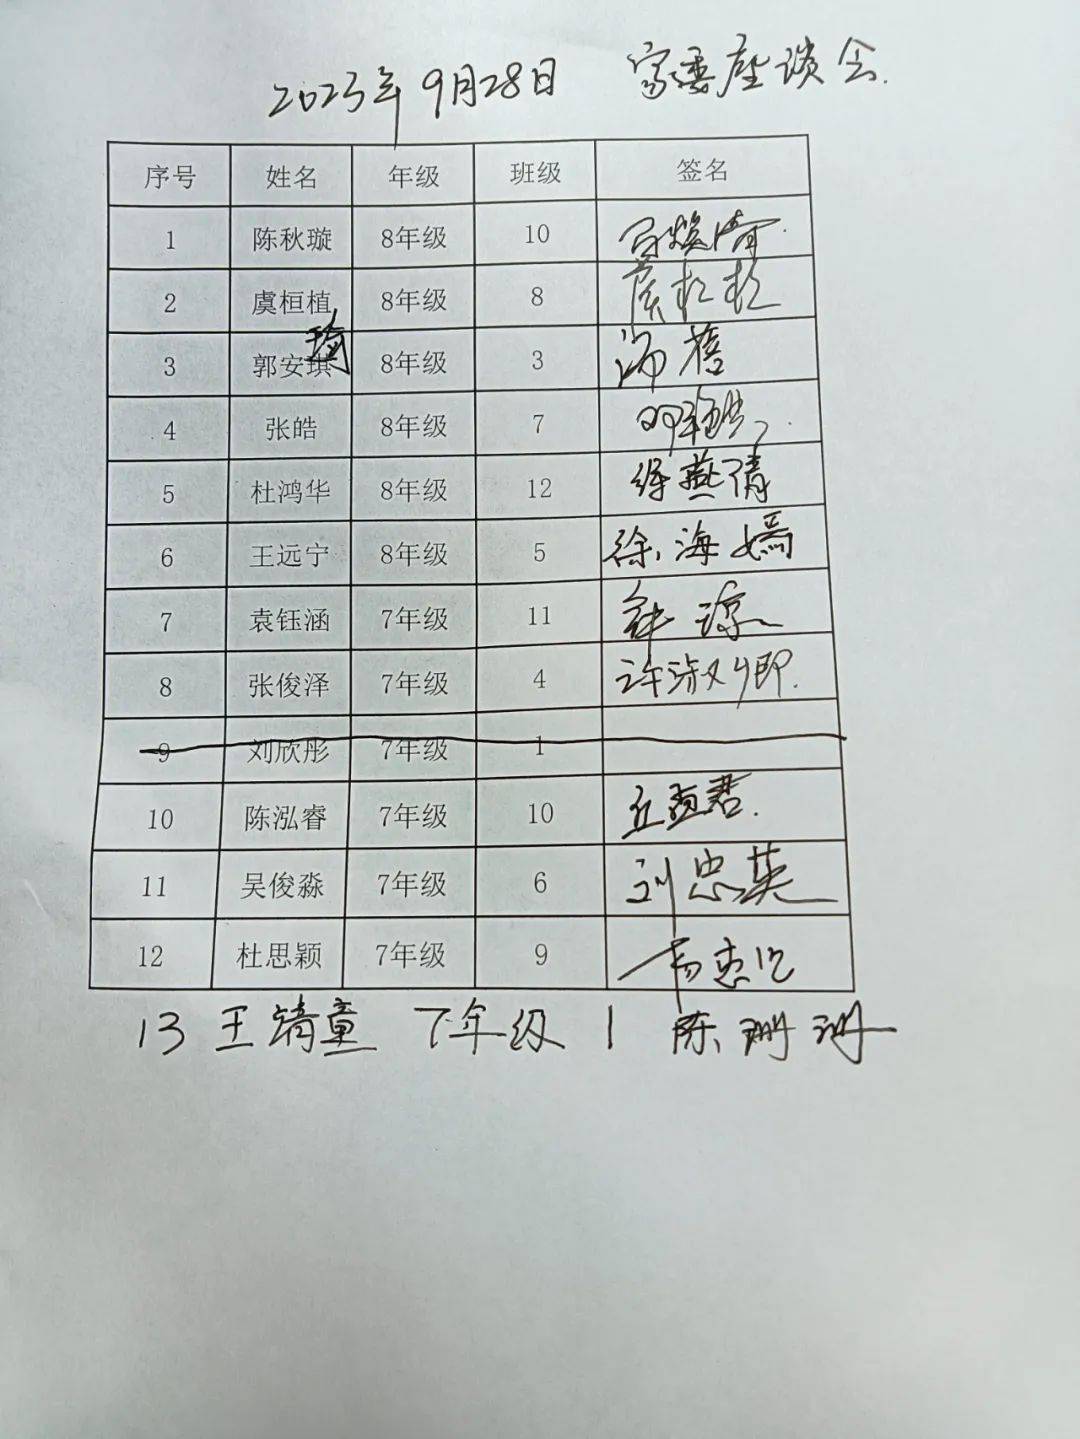 2023年9月28日 家委座谈会.
序号 姓名 年级 班级 签名
1 陈秋璇 8年级 10
2 虞桓植 8年级 8
3 郭安琪 瑜 8年级 3
4 张皓 8年级 7
5 杜鸿华 8年级 12 徐燕清
6 王远宁 8年级 5 徐海嫣
7 袁钰涵 7年级 11 钟琼
8 张俊泽 7年级 4 许淑卿.
9 刘欣彤 7年级 1
10 陈泓睿 7年级 10 丘君.
11 吴俊淼 7年级 6 刘忠英
12 杜思颖 7年级 9
13 王婧童 7年级 1 陈珊珊